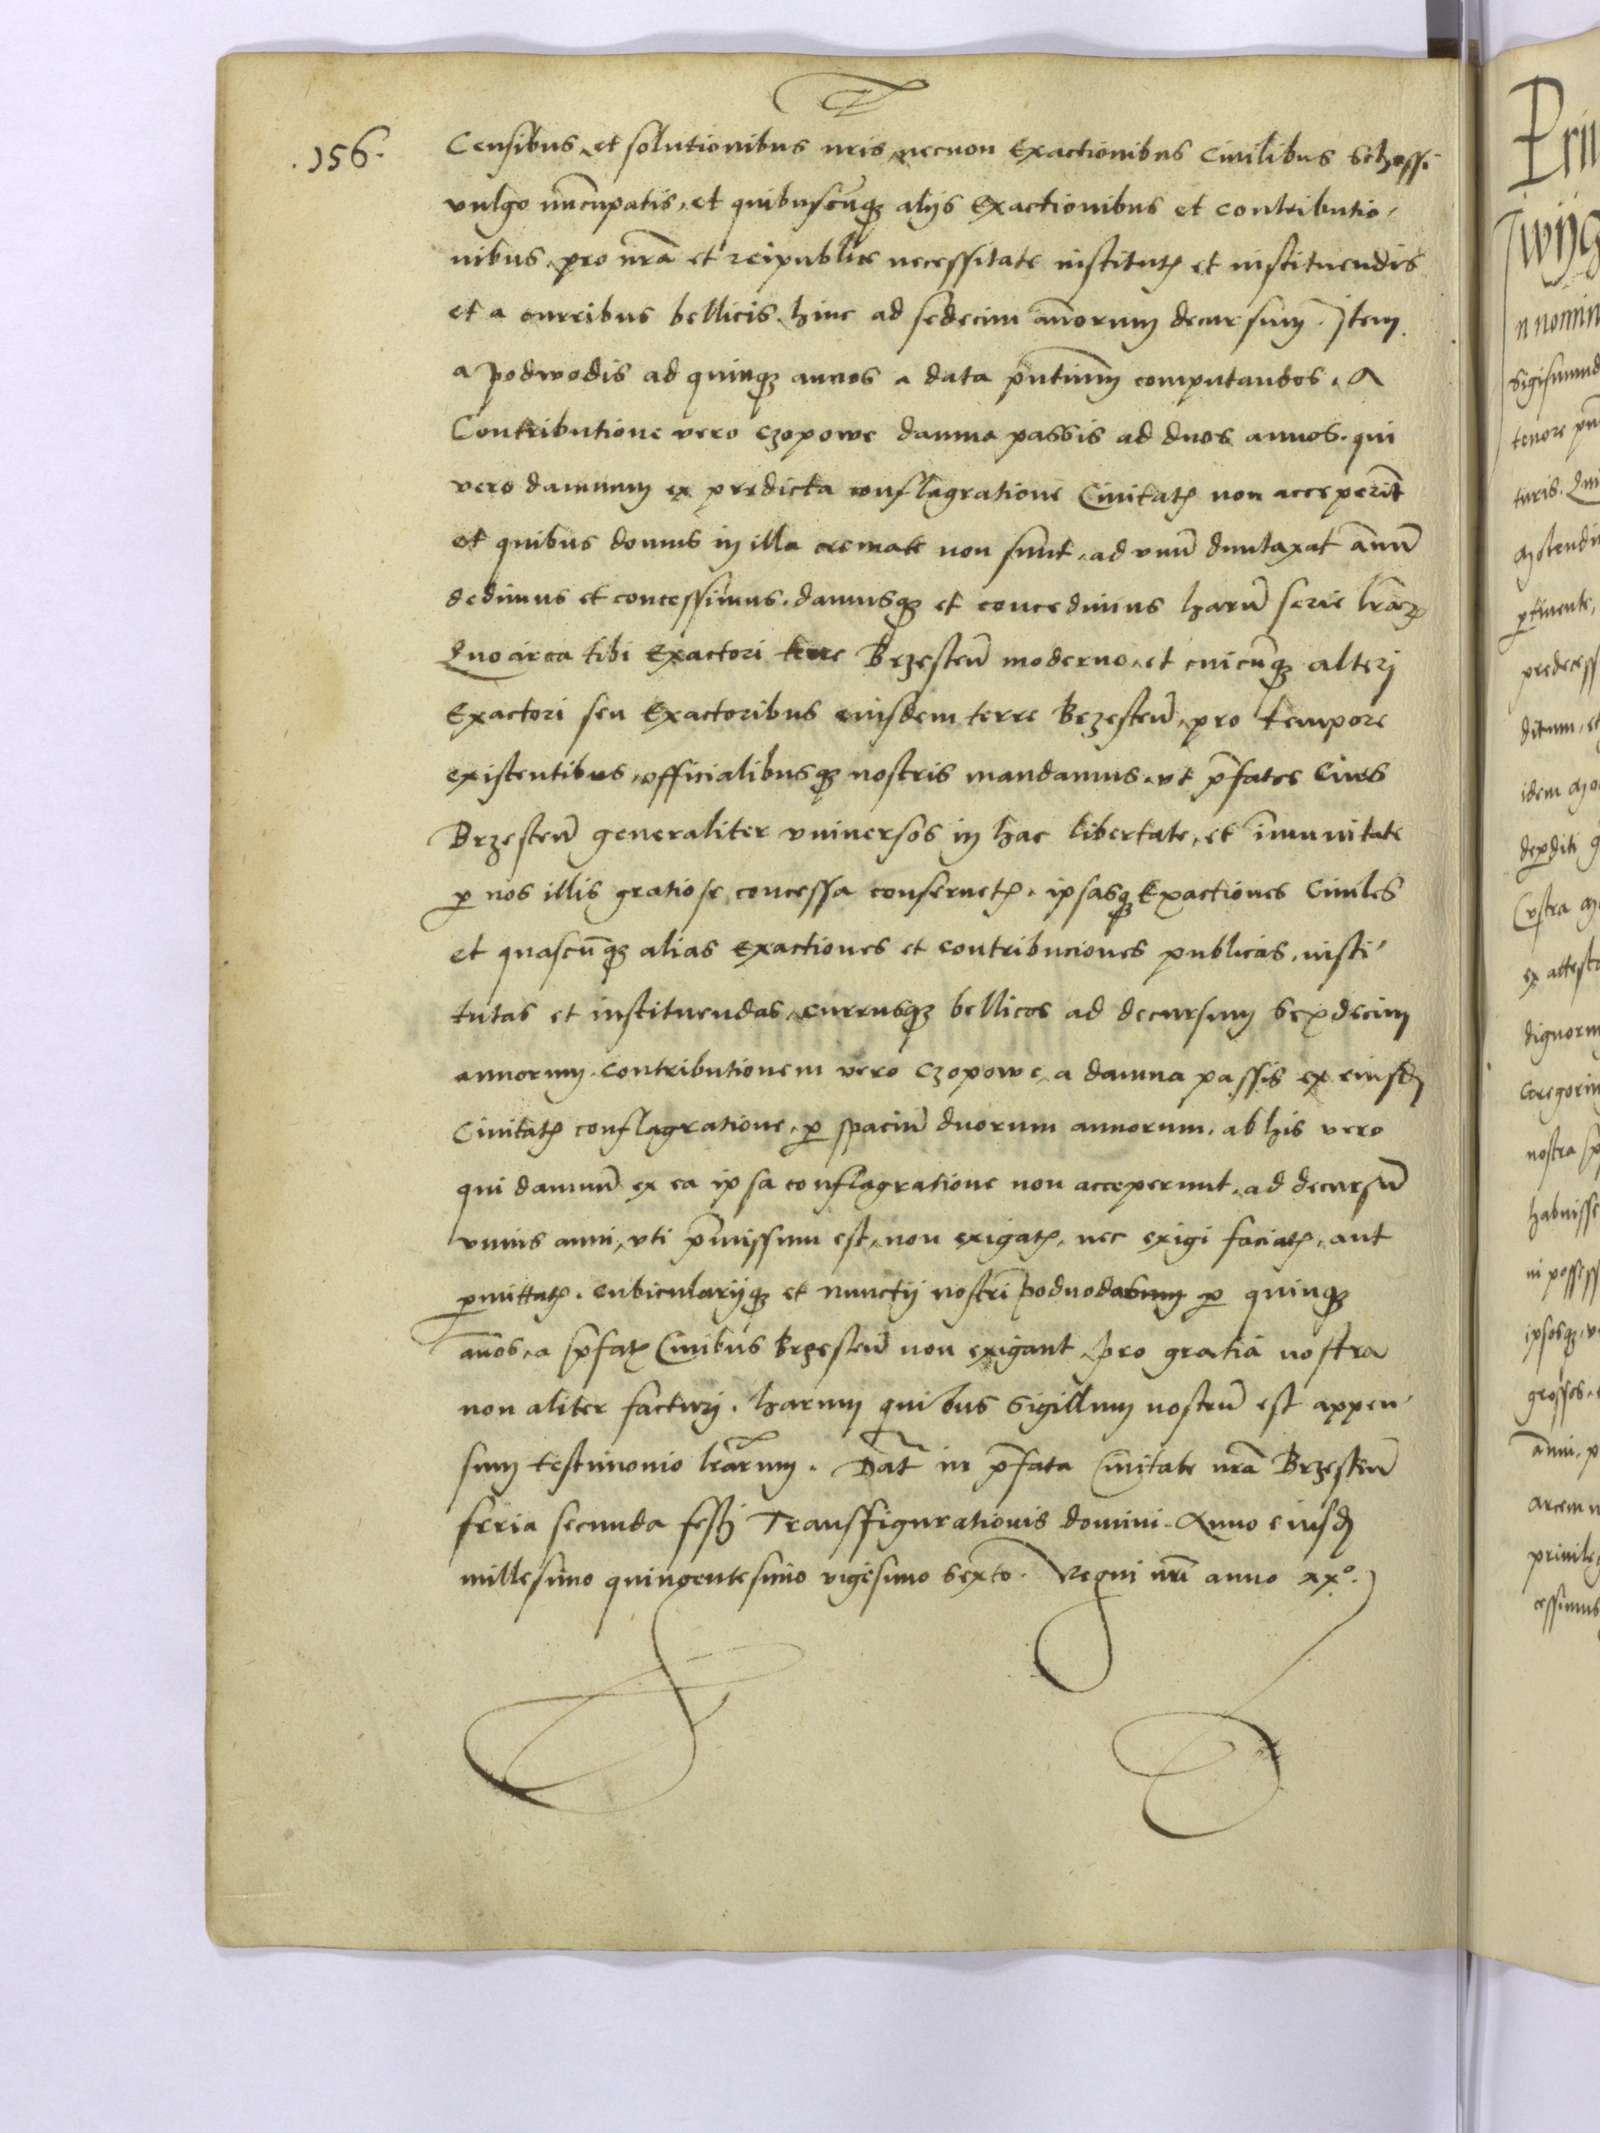 .156.
Censibus, et solutionibus nris, necnon Exactionibus Ciuilibus Schossi
vulgo nūcupatis, et quibuscūq3 alijs Exactionibus et contributio-
nibus, pro nrā et reipublice necessitate institutꝭ et instituendis
et a curribus bellicis, hinc ad sedecim annorum decursum. Item
a podwodis ad quinq3 annos a data pntium computandos. A
Contributione vero czopowe damna passis ad duos annos, qui
vero damnum ex predicta conflagratione Ciuitatꝭ non acceperūt
et quibus domus in illa cremate non sunt, ad vnū duntaxat annū
dedimus et concessimus, damusq3 et concedimus harū serie lrarꝝ
Quocirca tibi Exactori terre Brzestēn moderno, et cuicūq3 alteri
Exactori seu Exactoribus eiusdem terre Brzestēn, pro tempore
existentibus, officialibusq3 nostris mandamus, vt pfatos Ciues
Brzestēn generaliter vniuersos in hac libertate, et imunitate
ꝑ nos illis gratiose concessa conseruetꝭ, ipsasq3 Exactiones Ciuiles
et quascūq3 alias exactiones et contribuciones publicas, insti-
tutas et instituendas, currusq3 bellicos ad decursum sexdecim
annorum, contributionem vero czopowe, a damna passis ex eiusd
Ciuitatꝭ conflagratione, ꝑ spaciū duorum annorum, ab his vero
qui damnū ex ea ipsa conflagratione non acceperunt, ad decursū
vnius anni, vti pmissum est, non exigatꝭ, nec exigi faciatꝭ, aut
ꝑmittatꝭ. Cubicularijq3 et nunctij nostri poduodarum ꝑ quinq3
annos, a pfatꝭ Ciuibus Brzestēn non exigant, pro gratia nostra
non aliter facturi. harum quibus Sigillum nostrū est appen-
sum testimonio lrarum. Dat in pfata Ciuitate nrā Brzestēn
feria secunda festi Transffigurationis domini. Anno eiusd
millesimo quingentesimo vigesimo sexto. Regni nri anno xxº.
n nomin
Sigismund
tenore
turis.
ꝑtinente,
predecess
ditum, et
idem
ex attesta
dignorum
Gregoriu
nostra
habuisse
in possess
ipsosq3,
grosses,
anni,
arcem
priuileg
cessimus